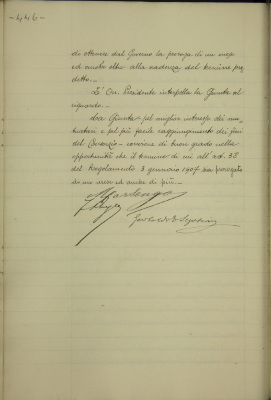 - 446 -
di ottenere dal Governo la proroga di un mese
ed anche oltre alla scadenza del termine pre
detto. -
L'On. Presidente interpella la Giunta al
riguardo. -
La Giunta - pel miglior interesse dei
e pel più facile raggiungimento dei fini
del Consorzio - conviene di buon grado nella
opportunità che il termine di cui all'art. 38
del Regolamento 3 gennaio 1907 sia prorogato
di un mese ed anche di più. -